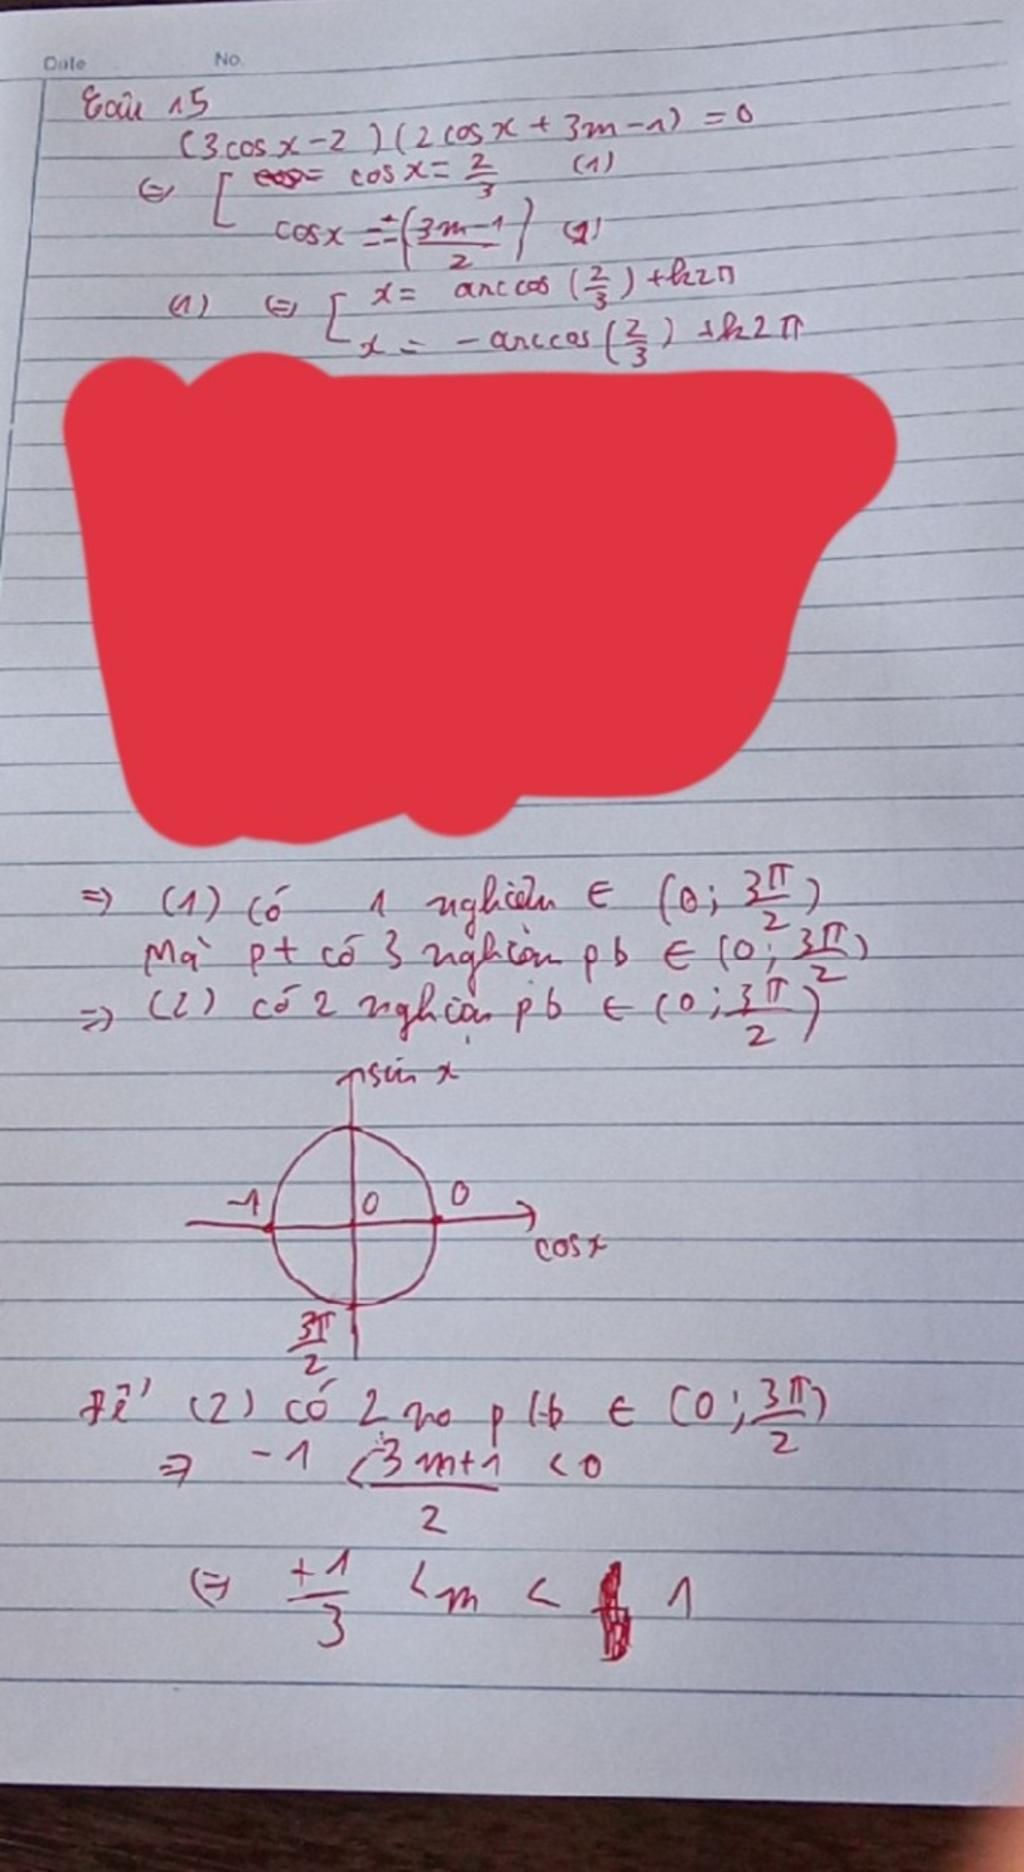 Date No.
Câu 15
(3cosx-2)(2cosx+3m-1)=0
⇔ [ cosx = 2/3 (1)
cosx = -(3m-1/2) (2)
(1) ⇔ [ x = arccos(2/3)+k2π
x = -arccos(2/3)+k2π
⇒ (1) có 1 nghiệm ∈ (0; 3π/2)
Mà pt có 3 nghiệm pb ∈ (0; 3π/2)
⇒ (2) có 2 nghiệm pb ∈ (0; 3π/2)
sin x
-1 0 0
cosx
3π/2
Để (2) có 2 no pb ∈ (0; 3π/2)
⇒ -1 < -3m+1/2 < 0
⇔ +1/3 < m < 1